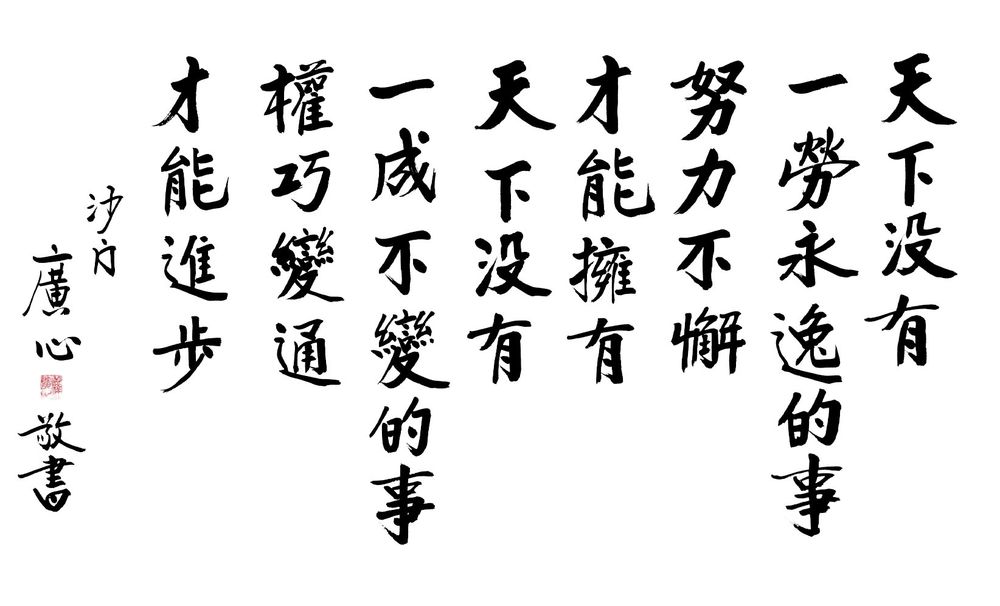 天下没有
一勞永逸的事
努力不懈
才能擁有
天下没有
一成不變的事
權巧變通
才能進步
沙門
廣心
敬書